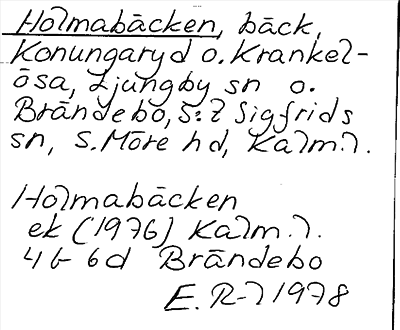 Holmabäcken, bäck,
Konungaryd o. Krankel-
ösa, Ljungby sn o.
Brändebo, S:t Sigfrids
sn, S. Möre hd, Kalm. l.
Holmabäcken
ek (1976) Kalm. l.
4G 6d Brändebo
E. R-l 1978